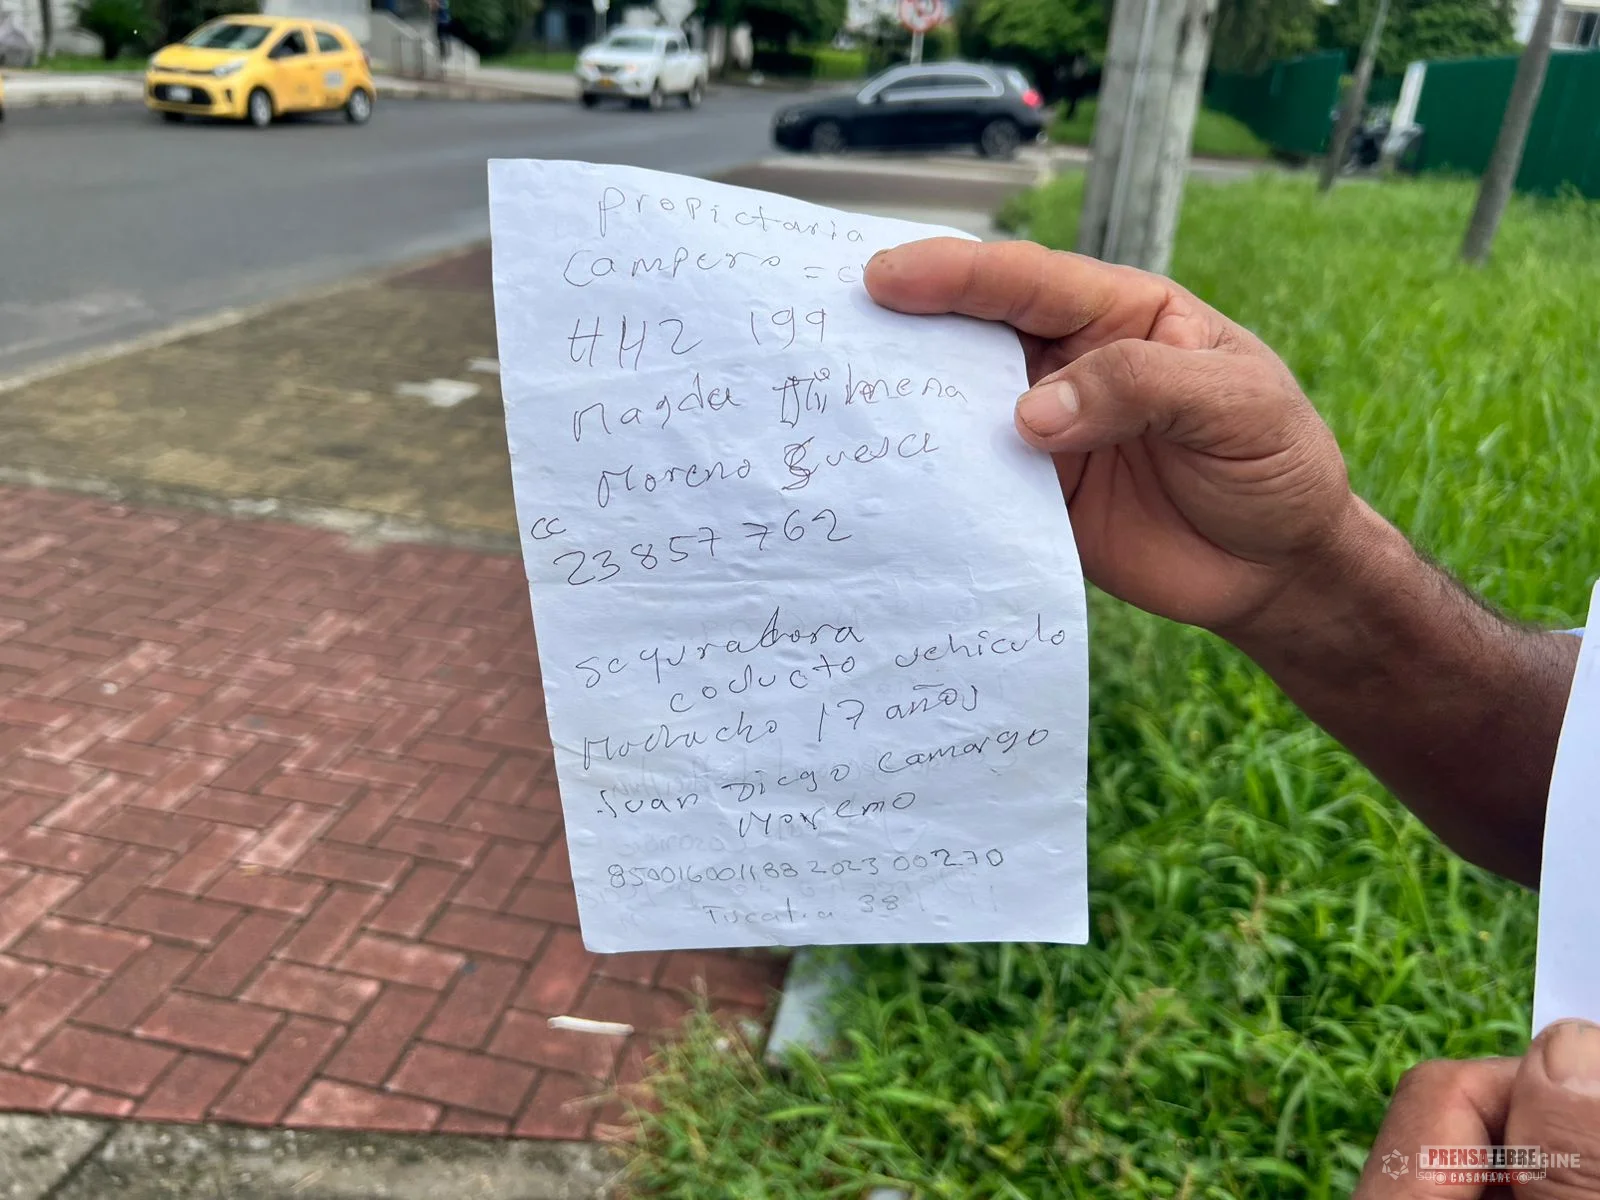 Propietaria
Campero =
HHZ 199
Magda Milena
Moreno Guesa
cc
23857762
seguradora
coducto vehiculo
Muchacho 17 años
Juan Diego Camargo
Moreno
850016001188202300270
Fucalia 38
PRENSA LIBRE
CASANARE